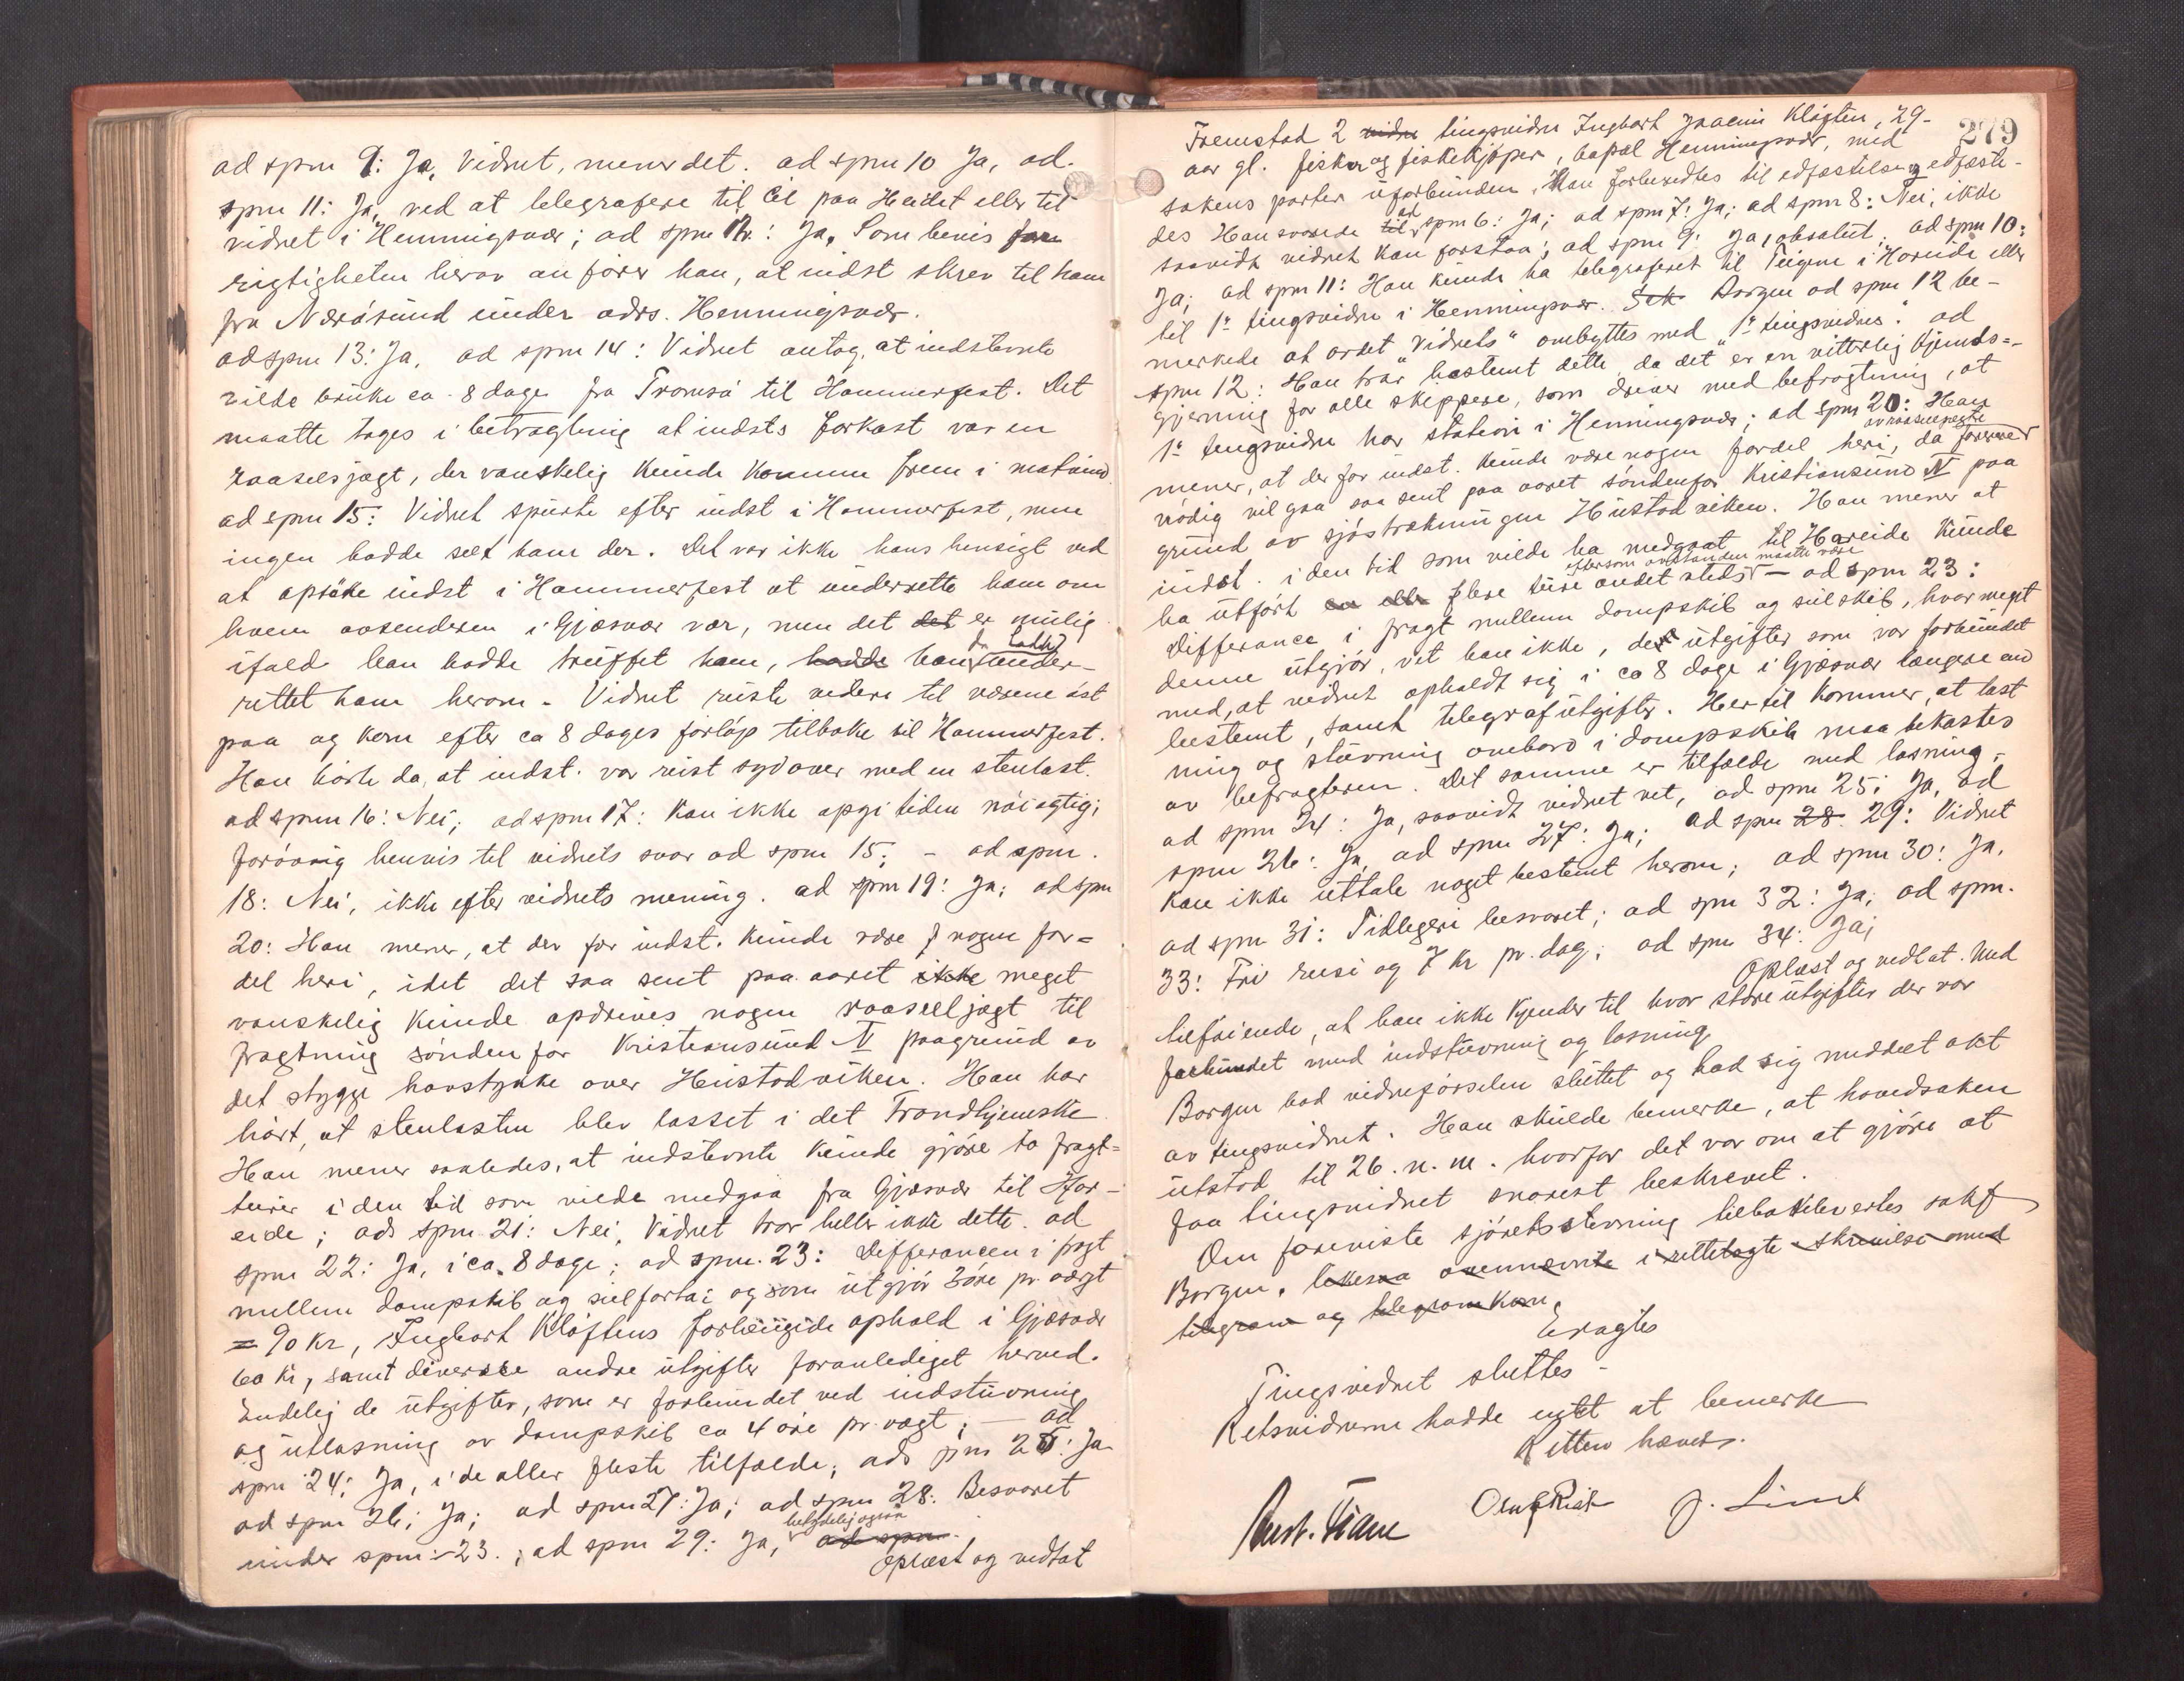 ad spm 9: Ja, Vidnet, mener det. ad spm 10 Ja, ad.
spm 11: Ja, ved at telegrafere til paa Heidet eller til
vidnet i Henningsvær; ad spm 12: Ja. Som bevis for
rigtigheten herav anförer han, at indst skrev til ham
fra Nærösund under adrs. Henningsvær.
ad spm 13: Ja, ad spm 14: Vidnet antog, at indstevnte
vilde bruke ca 8 dage fra Tromsö til Hammerfest. Det
maatte tages i betragtning at indsts farkost var en
raaseilsjagt, der vanskelig kunde komme frem i motvind
ad spm 15: Vidnet spurte efter indst i Hammerfest, men
ingen hadde set ham der. Det var ikke hans hensigt ved
at opsöke indst i Hammerfest at underrette ham om
hvem avsenderen i Gjæsvær var, men det det er mulig
ifald han hadde truffet ham, hadde han under-
hadde
rettet ham herom. Vidnet reiste videre til værene öst
paa og kom efter ca 8 dages forlöp tilbake til Hammerfest.
Han hörte da, at indst. var reist sydover med en stenlast.
ad spm 16: Nei; ad spm 17: Kan ikke opgi tiden nöiagtig;
forövrig henvis til vidnets svar ad spm 15; - ad spm.
18: Nei, ikke efter vidnets mening. ad spm 19: Ja; ad spm
20: Han mener, at der for indst. kunde være nogen for=
del heri, idet det saa sent paa aaret ikke meget
vanskelig kunde opdrives nogen raaseiljagt til
fragtning söndenfor Kristiansund N paagrund av
det stygge havstykke over Hustadviken. Han har
hört, at stenlasten blev lasset i det Trondhjemske
Han mener saaledes, at indstevnte kunde gjöre to fragt=
turer i den tid som vilde medgaa fra Gjæsvær til Har-
eide; ad spm 21: Nei, Vidnet tror heller ikke dette. ad
spm 22: Ja, i ca. 8 dage; ad spm. 23: Differancen i fragt
mellem dampskib og seilfartöi og som utgjör 3 öre pr. vægt
= 90 kr, Ingbart Kløftens forlængede ophold i Gjæsvær
60 kr, samt diverske andre utgifter foranlediget herved.
Endelig de utgifter, som er forbundet ved indstuvning
og utlosning av dampskib ca 4 öre pr. vægt; - ad
spm 24: Ja, i de aller fleste tilfælde; ad spm 25: Ja
ad spm 26: Ja; ad spm 27: Ja; ad spm 28: Besvaret
under spm 23.; ad spm 29: Ja, ad spm
betydelig ogsaa
Oplæst og vedtat
279
Fremstod 2 vidne tingsvidne Ingbart Joacim Kløften, 29-
aar gl. fisker og fiskekjöper, bopæl Henningsvær, med
sakens parter uforbunden. Han forberedtes til edfæstelse og edfæste-
des Han svarede til spm 6: Ja; ad spm 7: Ja; ad spm 8: Nei, ikke
ad
saavidt vidnet kan forstaa; ad spm 9: Ja, absolut. ad spm 10:
Ja; ad spm 11: Han kunde ha telegraferet til Teigene i Hareide eller
til 1ste tingsvidne i Henningsvær. Borgen ad spm 12 be-
merkede at ordet "Vidnets" ombyttes med "1ste tingsvidnes". ad
spm 12: Han tror bestemt dette, da det er en vitterlig kjends=
gjerning for alle skippere, som driver med befragtning, at
1ste tingsvidne har station i Henningsvær; ad spm 20: Han
mener, at der for indst. kunde være nogen fordel heri, da förere
av raaseilsjagte
nödig vil gaa saa sent paa aaret söndenfor Kristiansund N paa
grund av sjöstrækningen Hustadviken. Han mener at
indst. i den tid som vilde ha medgaat til Hareide kunde
ha utfört en eller flere ture andet steds - ad spm 23:
eftersom avstanden maatte være
Differance i fragt mellem dampskib og seilskib, hvor meget
denne utgjör, vet han ikke, de utgifter som var forbundet
med, at vidnet opholdt sig i ca 8 dage i Gjæsvær længere end
bestemt, samt telegrafutgifter. Hertil kommer, at last
ning og stuvning ombord i dampskib maa bekostes
av befragteren. Det samme er tilfælde med losning.-
ad spm 24: Ja, saavidt vidnet vet, ad spm 25: Ja, ad
spm 26: Ja, ad spm 27: Ja; ad spm 28. 29: Vidnet
kan ikke uttale noget bestemt herom; ad spm 30: Ja.
ad spm 31: Tidligere besvaret; ad spm 32: Ja; ad spm.
33: Fri reise og 7 kr pr. dag; ad spm 34: Ja;
Oplæst og vedtat. Med
tilföiende, at han ikke kjender til hvor store utgifter der var
forbundet med indstuvning og losning
Borgen bad vidneförselen sluttet og bad sig meddelt akt
av tingsvidnet. Han skulde bemerke, at hovedsaken
utstod til 26. n. m. hvorfor det var om at gjöre at
faa tingsvidnet snarest beskrevet.
Den foreviste sjöretsstevning tilbakelevertes sakf
Borgen, likesaa ovennævnte i rettelagte skrivelse med
telegram og telegramkon.
Eragtes
Tingsvidnet sluttes -
Retsvidnerne hadde intet at bemerke
Retten hævet.